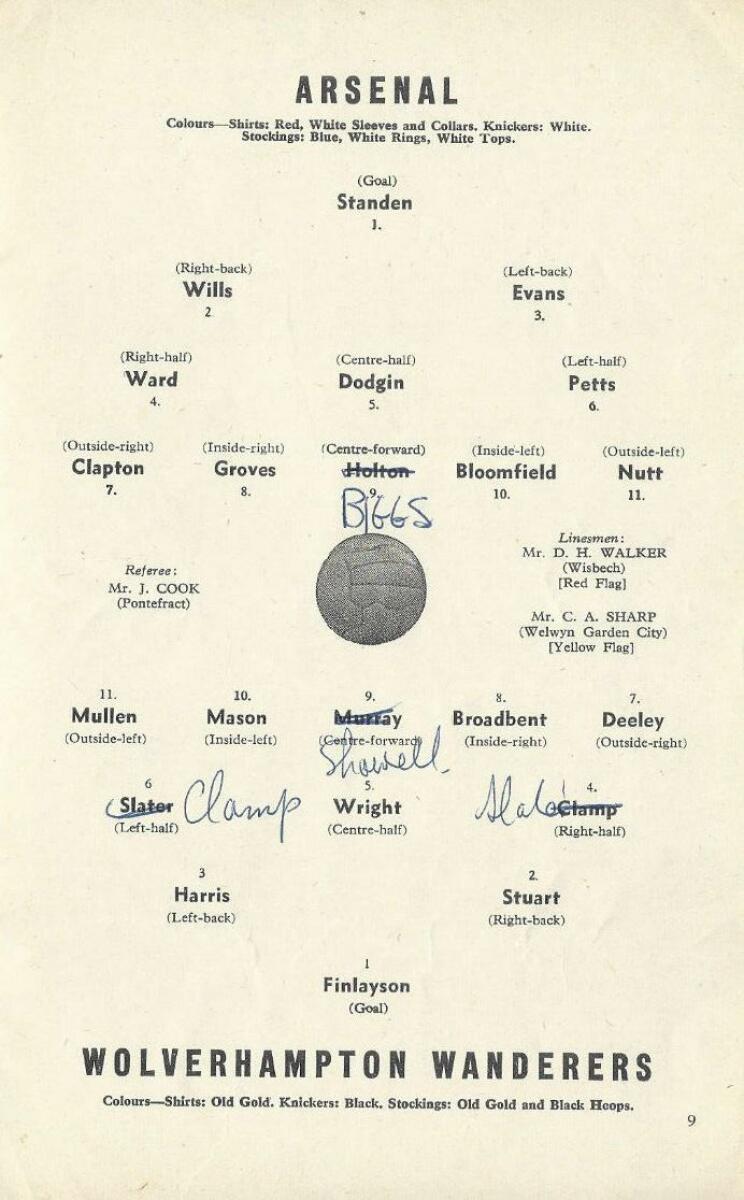 ARSENAL
Colours—Shirts: Red, White Sleeves and Collars. Knickers: White.
Stockings: Blue, White Rings, White Tops.
(Goal)
Standen
1.
(Right-back) (Left-back)
Wills Evans
2 3.
(Right-half) (Centre-half) (Left-half)
Ward Dodgin Petts
4. 5. 6.
(Outside-right) (Inside-right) (Centre-forward) (Inside-left) (Outside-left)
Clapton Groves Holton Bloomfield Nutt
7. 8. 9. 10. 11.
BIGGS
Referee:
Mr. J. COOK
(Pontefract)
Linesmen:
Mr. D. H. WALKER
(Wisbech)
[Red Flag]
Mr. C. A. SHARP
(Welwyn Garden City)
[Yellow Flag]
11. 10. 9. 8. 7.
Mullen Mason Murray Broadbent Deeley
(Outside-left) (Inside-left) (Centre-forward) (Inside-right) (Outside-right)
Showell.
6 5. 4.
Slater Clamp Wright Slater Clamp
(Left-half) (Centre-half) (Right-half)
3 2.
Harris Stuart
(Left-back) (Right-back)
1
Finlayson
(Goal)
WOLVERHAMPTON WANDERERS
Colours—Shirts: Old Gold. Knickers: Black. Stockings: Old Gold and Black Hoops.
9